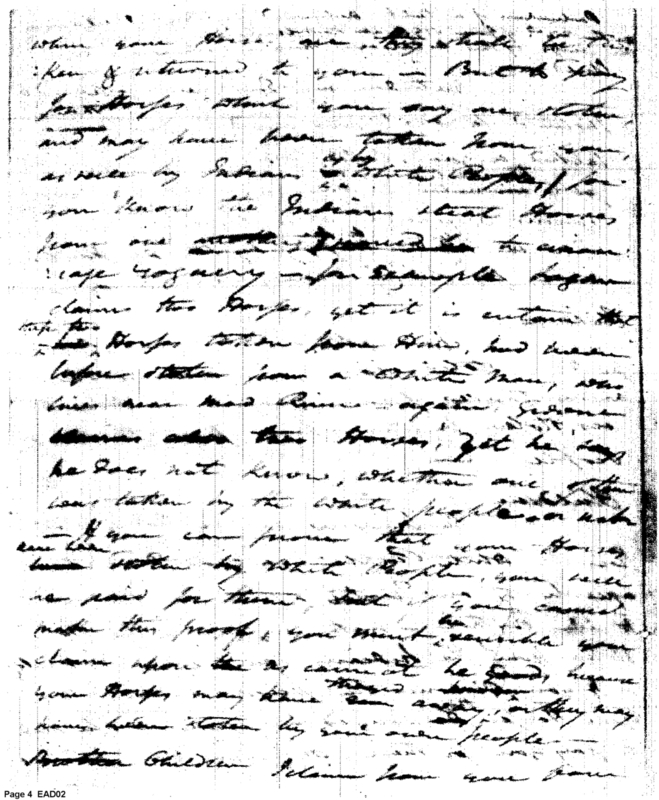 when your Horses are, they shall be ta
:ken & returned to you, — But to pay
for Horses which you say are stolen,
and may have been taken from you,
as well by Indians as by White People, for
you know the Indians steal Horses
from one to encou
:rage roguery — for Example Logan
claims two Horses, yet it is certain that
these two Horses taken from Him, had been
before stolen from a White Man, who
lives near Mad River — again,
claims also two Horses, yet he says
he does not know, whether one of them
was taken by the white people or not
— If you can prove that your Horses
have been stolen by White People, you will
be paid for them, but if you cannot
make this proof, you must be sensible your
claim upon us cannot be good, because
your Horses may have away, or they may
have been stolen by your own people —
Children I claim from you
Page 4 EAD02